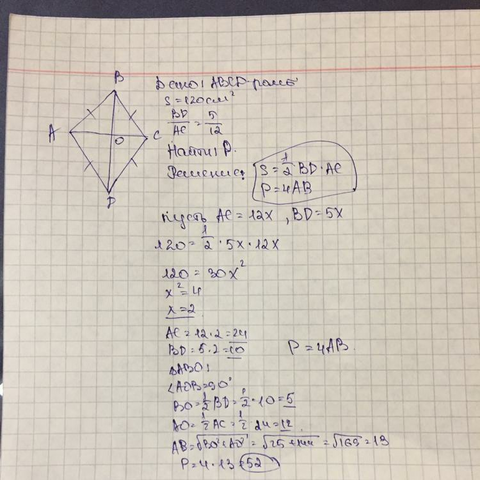 B
Дано: ABCD-ромб
S=120см²
BD/AC = 5/12
A
O
C
Найти: P.
Решение:
S=1/2 BD·AC
P=4AB
D
Пусть AC=12x, BD=5x
120=1/2·5x·12x
120=30x²
x²=4
x=2
AC=12·2=24
BD=5·2=10
P=4AB
ΔABO:
∠AOB=90°
BO=1/2BD=1/2·10=5
AO=1/2AC=1/2 24=12
AB=√BO²+AO²=√25+144=√169=13
P=4·13=52